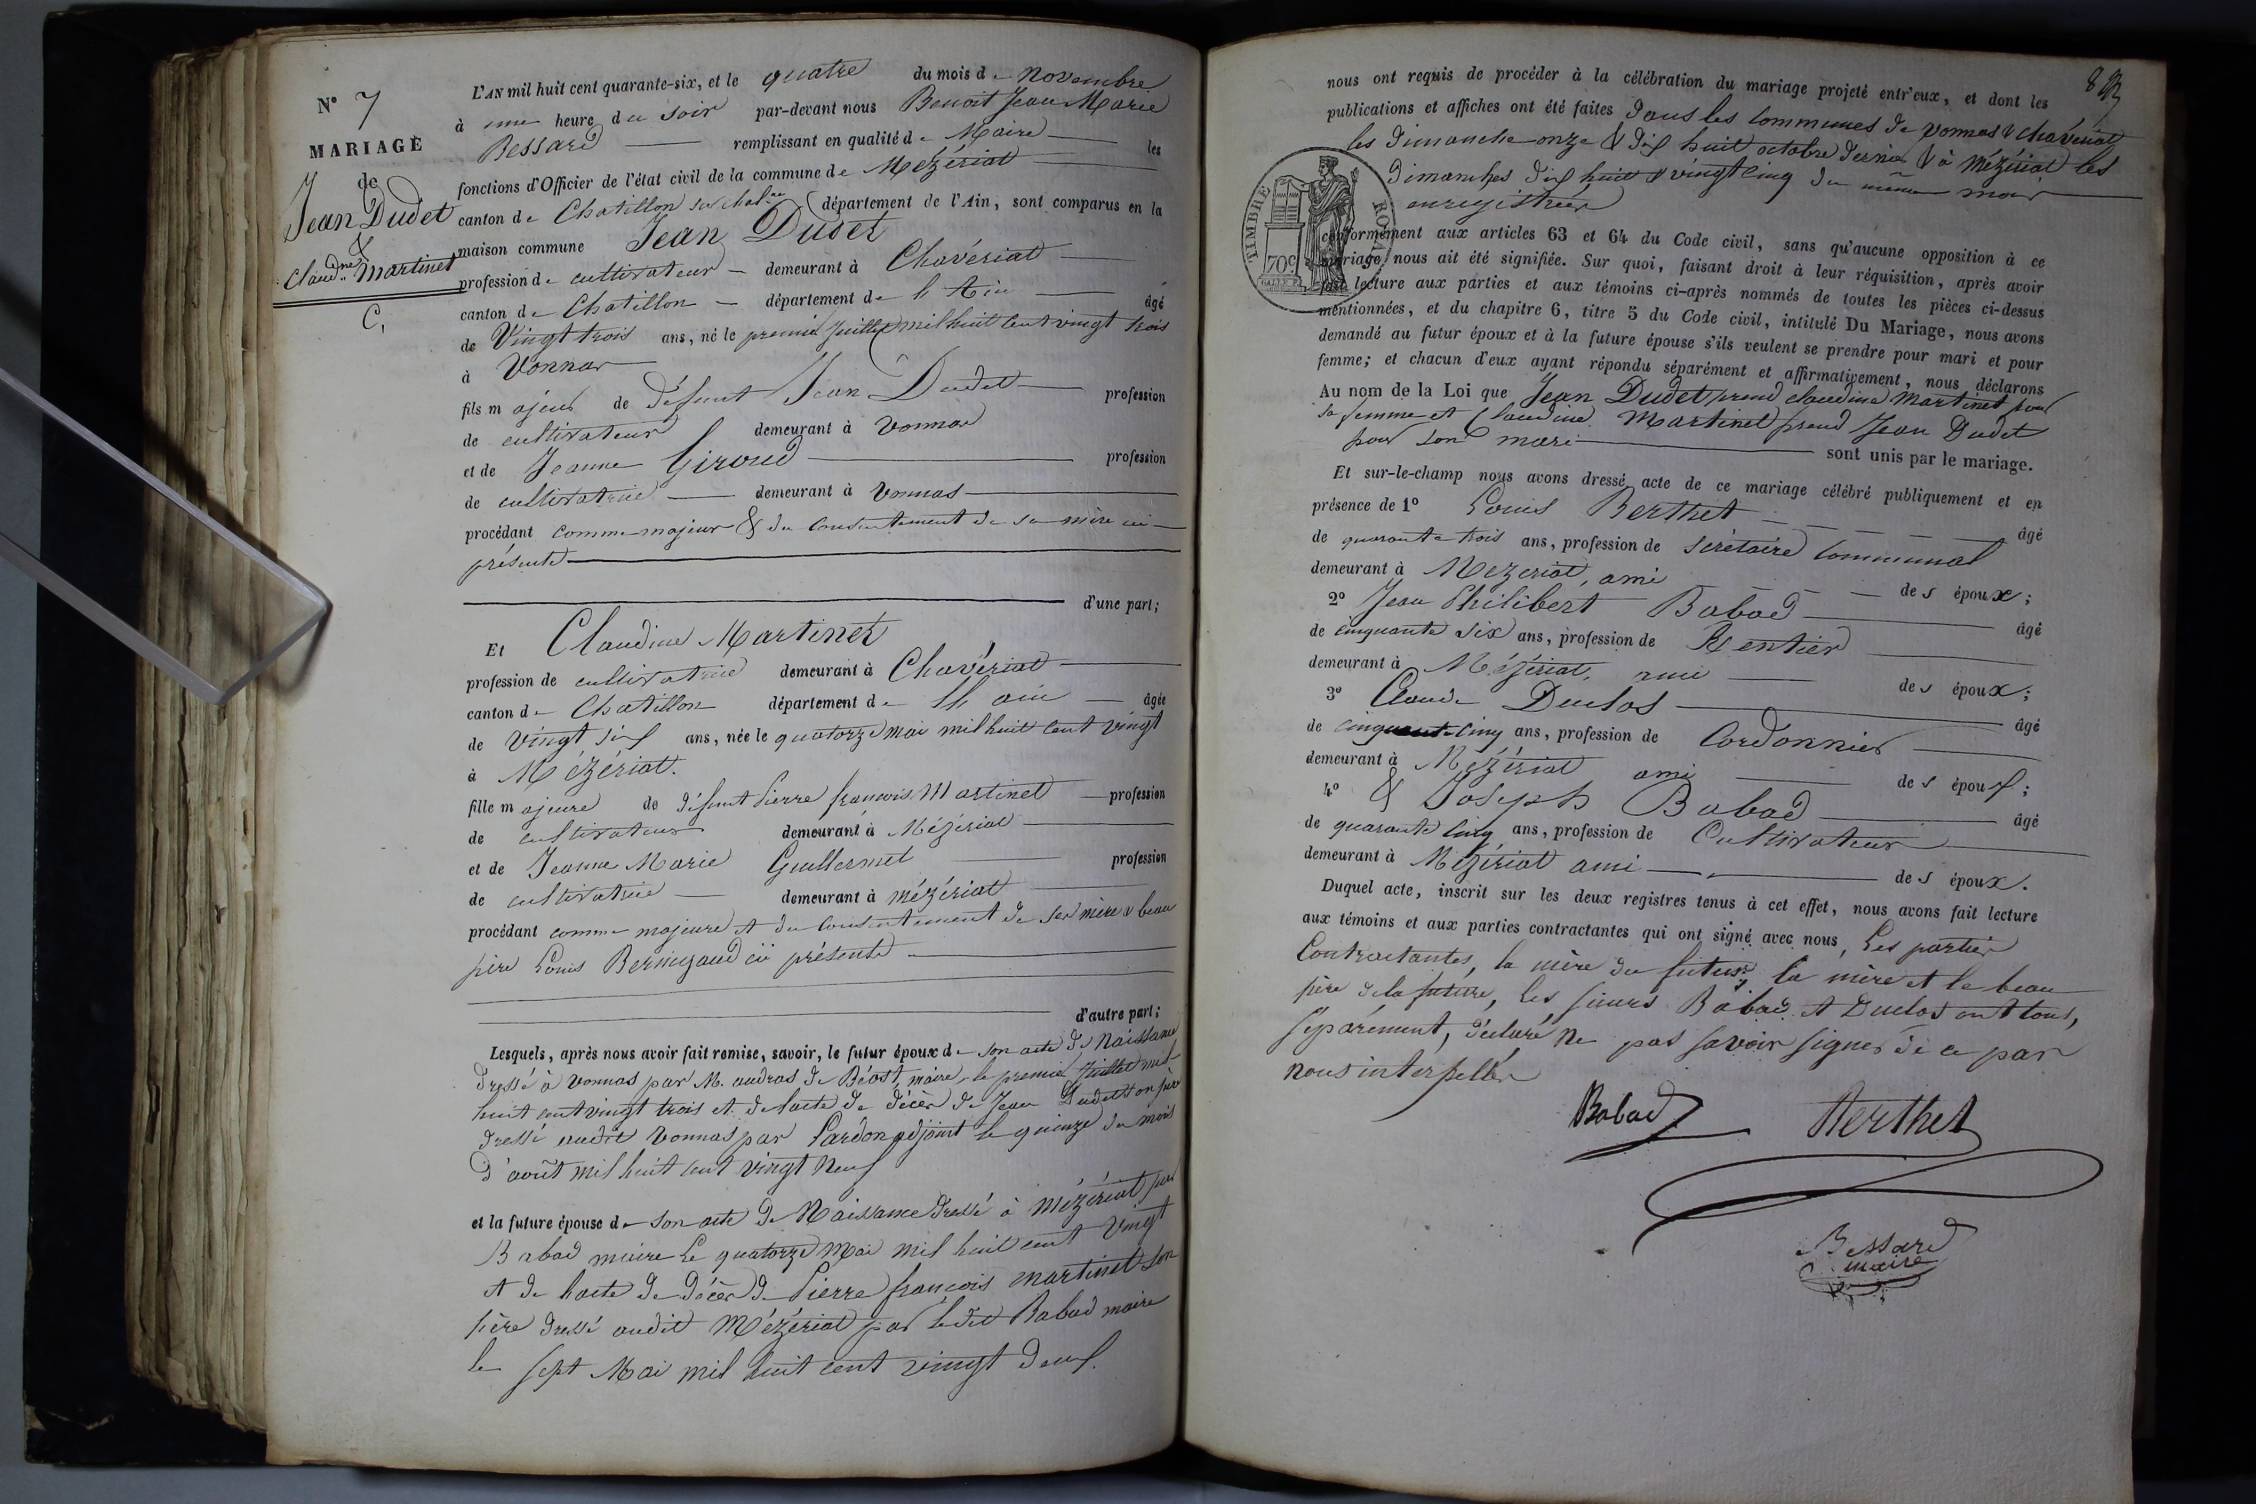 N° 7
MARIAGE
de
Jean Dudet
&
Claudine Martinet
C.
L'AN mil huit cent quarante-six, et le quatre du mois de Novembre
à une heure du soir par-devant nous Benoit Jean Marie
Bessard remplissant en qualité de Maire les
fonctions d'Officier de l'état civil de la commune de Mézériat
canton de Chatillon sur chal.ne département de l'Ain, sont comparus en la
maison commune Jean Dudet
profession de cultivateur demeurant à Chavériat
canton de Chatillon département de l'Ain âgé
de Vingt trois ans, né le premier Juillet mil huit cent vingt trois
à Vonnas
fils majeur de défunt Jean Dudet profession
de cultivateur demeurant à Vonnas
et de Jeanne Giroud profession
de cultivatrice demeurant à Vonnas
procédant comme majeur & du consentement de sa mère ici
présente
d'une part;
Et Claudine Martinet
profession de cultivatrice demeurant à Chavériat
canton de Chatillon département de l'ain âgée
de vingt six ans, née le quatorze mai mil huit cent vingt
à Mézériat.
fille majeure de défunt Pierre françois Martinet profession
de cultivateur demeurant à Mézériat
et de Jeanne Marie Guillermet profession
de cultivatrice demeurant à mézériat
procédant comme majeure et du consentement de ses mère & beau
père Louis Bernigaud ici présents
d'autre part;
Lesquels, après nous avoir fait remise, savoir, le futur époux de son acte de Naissance
dressé à Vonnas par M. audras de Béost, maire, le premier Juillet mil
huit cent vingt trois et de l'acte de décès de Jean Dudet son père
dressé audit Vonnas par Pardon adjoint le quinze du mois
d'août mil huit cent vingt neuf
et la future épouse de son acte de Naissance dressé à Mézériat par
Babad maire le quatorze Mai mil huit cent vingt
et de l'acte de décès de Pierre françois martinet son
père dressé audit Mézériat par ledit Babad maire
le sept Mai mil huit cent vingt deux.
nous ont requis de procéder à la célébration du mariage projeté entr'eux, et dont les
publications et affiches ont été faites dans les communes de vonnas & chavériat
les dimanche onze & dix huit octobre dernier & à Mézériat les
dimanches dix huit & vingt cinq du même mois
enregistrées
TIMBRE ROYAL
70c
conformément aux articles 63 et 64 du Code civil, sans qu'aucune opposition à ce
mariage nous ait été signifiée. Sur quoi, faisant droit à leur réquisition, après avoir
fait lecture aux parties et aux témoins ci-après nommés de toutes les pièces ci-dessus
mentionnées, et du chapitre 6, titre 5 du Code civil, intitulé Du Mariage, nous avons
demandé au futur époux et à la future épouse s'ils veulent se prendre pour mari et pour
femme; et chacun d'eux ayant répondu séparément et affirmativement, nous déclarons
Au nom de la Loi que Jean Dudet prend claudine Martinet pour
sa femme et Claudine Martinet prend Jean Dudet
pour son mari sont unis par le mariage.
Et sur-le-champ nous avons dressé acte de ce mariage célébré publiquement et en
présence de 1° Louis Berthet âgé
de quarante trois ans, profession de secrétaire communal
demeurant à Mezeriat, ami des époux;
2° Jean Philibert Babad âgé
de cinquante six ans, profession de Rentier
demeurant à Mézériat, ami des époux;
3° Claude Duclos âgé
de cinquante cinq ans, profession de Cordonnier
demeurant à Mézériat ami des époux;
4° & Joseph Babad âgé
de quarante cinq ans, profession de Cultivateur
demeurant à Mézériat ami des époux.
Duquel acte, inscrit sur les deux registres tenus à cet effet, nous avons fait lecture
aux témoins et aux parties contractantes qui ont signé avec nous, Les parties
Contractantes, la mère du futur, la mère et le beau
père de la future, les sieurs Babad et Duclos ont tous,
séparément, déclaré ne pas savoir signer de ce par
nous interpellés
Babad Berthet
Bessard
maire